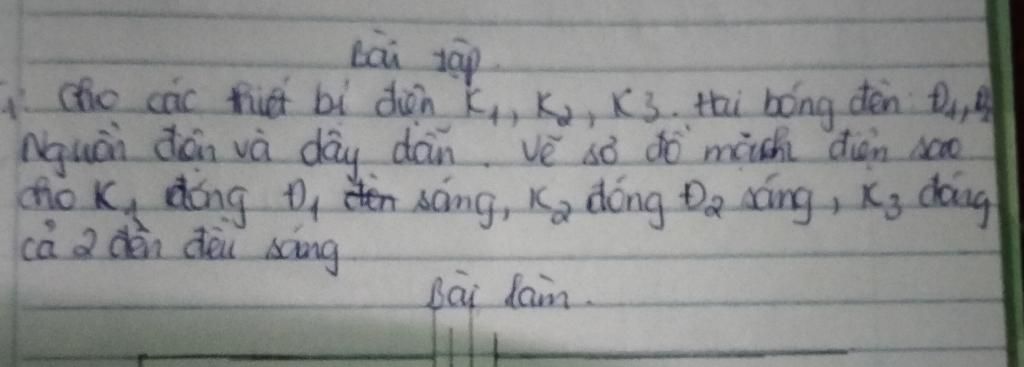 Bài tập.
1. Cho các thiết bị điện K1, K2, K3. Hai bóng đèn: Đ1, Đ2
Nguồn điện và dây dẫn. Vẽ sơ đồ mạch điện sao
cho K1 đóng Đ1 sáng, K2 đóng Đ2 sáng, K3 đóng
cả 2 đèn đều sáng
Bài làm.